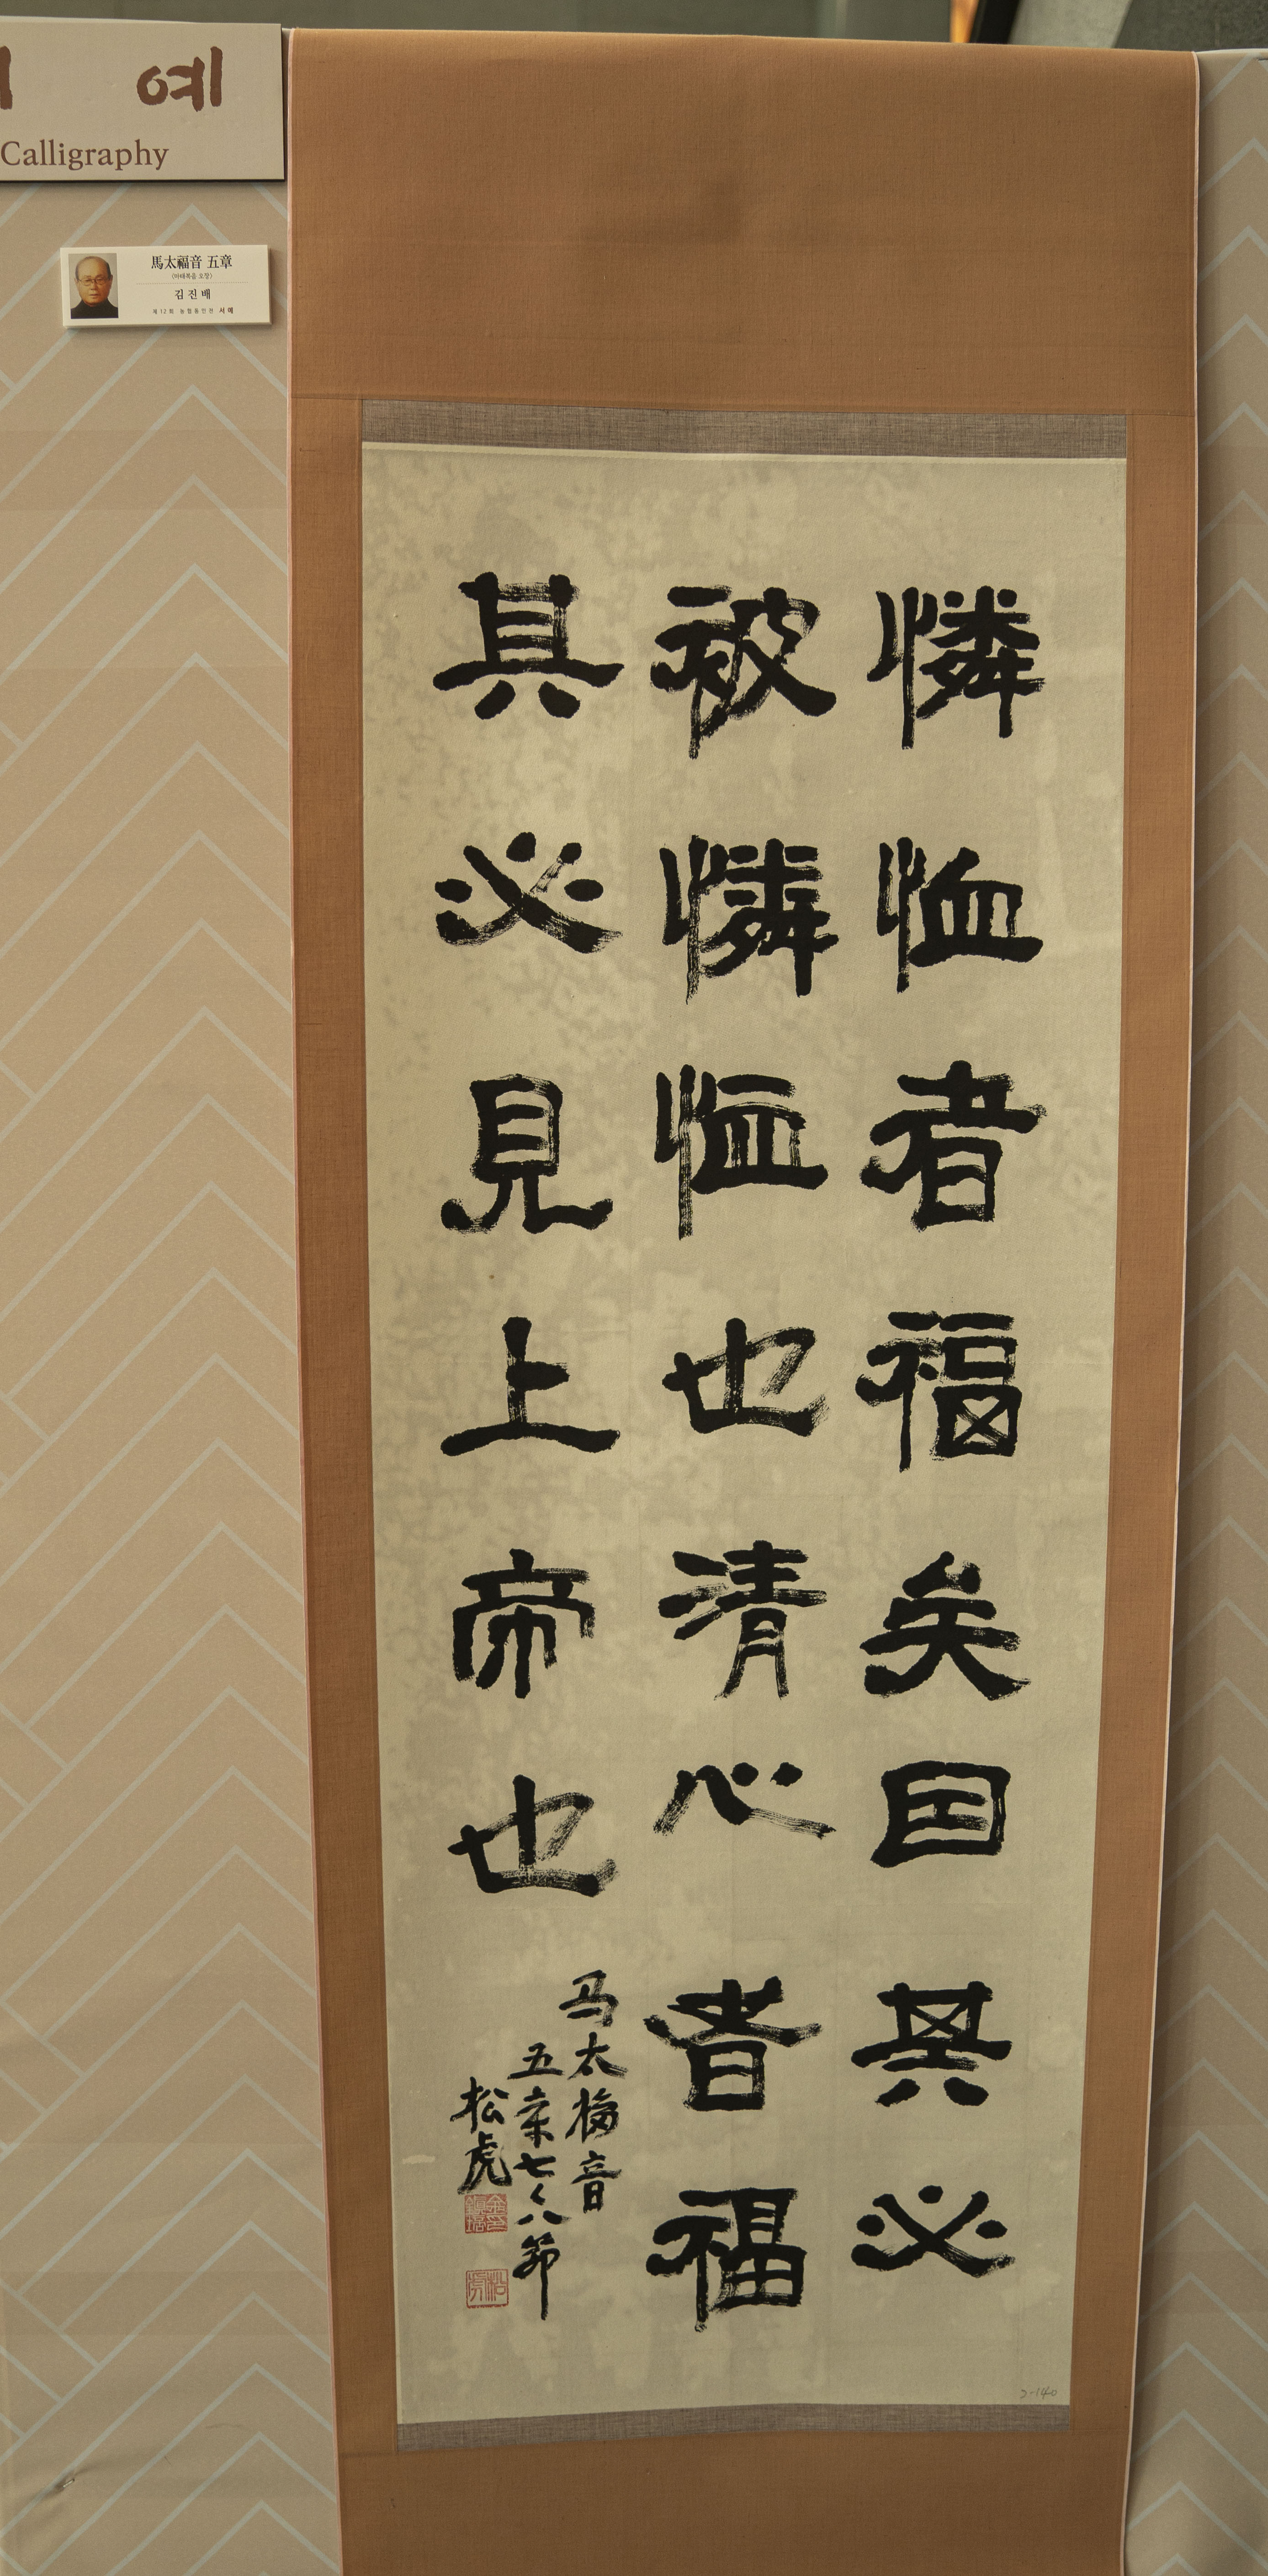 예
Calligraphy
馬太福音 五章
(마태복음 오장)
김진배
제12회 농협동인전 서예
憐恤者福矣因其必
被憐恤也清心者福
其必見上帝也
马太福音
五章七く八節
松虎
2-140